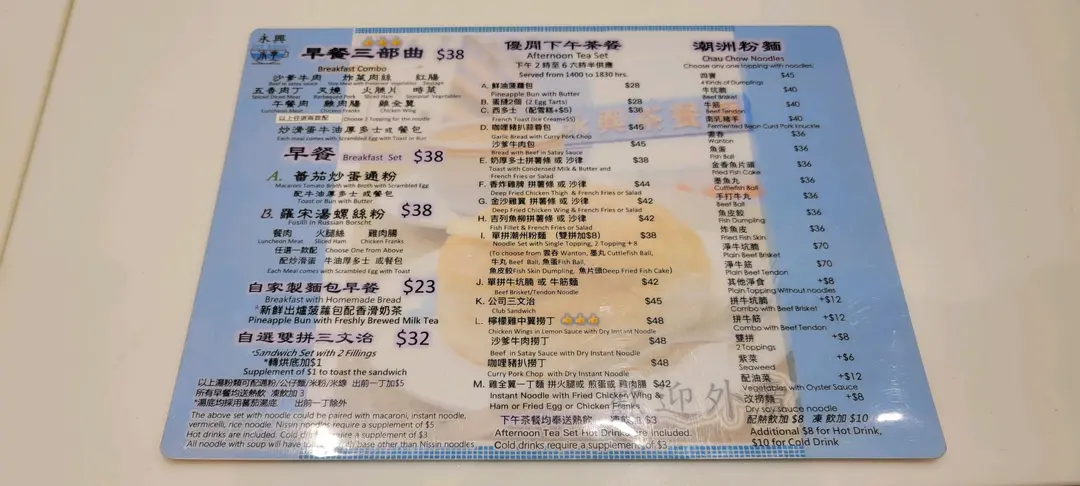 永興
早餐三部曲 $38
Breakfast Combo
沙爹牛肉 炸菜肉絲 紅腸
五香肉丁 叉燒 火腿片 時菜
午餐肉 雞肉腸 雞全翼
Luncheon Meat Chicken Franks Chicken Wing
以上任選兩款配 Choose 2 Topping for the noodle
炒滑蛋牛油厚多士或餐包
Each meal comes with Scrambled Egg with Toast or Bun
早餐 Breakfast Set $38
A. 蕃茄炒蛋通粉
Macaroni Tomato Broth with Broth with Scrambled Egg
配牛油厚多士或餐包
Toast or Bun with Butter
B. 羅宋湯螺絲粉 $38
Fusilli in Russian Borscht
餐肉 火腿絲 雞肉腸
Luncheon Meat Sliced Ham Chicken Franks
任選一款配 Choose One from Above
配炒滑蛋 牛油厚多士 或餐包
Each Meal comes with Scrambled Egg with Toast
自家製麵包早餐 $23
Breakfast with Homemade Bread
*新鮮出爐菠蘿包配香滑奶茶
Pineapple Bun with Freshly Brewed Milk Tea
自選雙拼三文治 $32
*Sandwich Set with 2 Fillings
*轉烘底加$1
Supplement of $1 to toast the sandwich
以上湯粉類可配通粉/公仔麵/米粉/米線 出前一丁加$5
所有早餐均送熱飲 凍飲加 3
*湯底均採用蕃茄湯底 出前一丁除外
The above set with noodle could be paired with macaroni, instant noodle,
vermicelli, rice noodle. Nissin noodles require a supplement of $5
Hot drinks are included. Cold drinks require a supplement of $3
All noodle with soup will have base other than Nissin noodles
優閒下午茶餐
Afternoon Tea Set
下午 2 時至 6 六時半供應
Served from 1400 to 1830 hrs.
A. 鮮油菠蘿包 $28
Pineapple Bun with Butter
B. 蛋撻2個 (2 Egg Tarts) $28
C. 西多士 (配雪糕+$5) $36
French Toast (Ice Cream+$5)
D. 咖喱豬扒蒜蓉包 $45
Garlic Bread with Curry Pork Chop
沙爹牛肉包 $45
Bread with Beef in Satay Sauce
E. 奶厚多士拼薯條 或 沙律 $38
Toast with Condensed Milk & Butter and
French Fries or Salad
F. 香炸雞脾 拼薯條 或 沙律 $44
Deep Fried Chicken Thigh & French Fries or Salad
G. 金沙雞翼 拼薯條 或 沙律 $42
Deep Fried Chicken Wing & French Fries or Salad
H. 吉列魚柳拼薯條 或 沙律 $42
Fish Fillet & French Fries or Salad
I. 單拼潮州粉麵 (雙拼加$8) $38
Noodle Set with Single Topping, 2 Topping +8
(To choose from 雲吞 Wanton, 墨丸 Cuttlefish Ball,
牛丸 Beef Ball, 魚蛋 Fish Ball,
魚皮餃Fish Skin Dumpling, 魚片頭Deep Fried Fish Cake)
J. 單拼牛坑腩 或 牛筋麵 $42
Beef Brisket/Tendon Noodle
K. 公司三文治 $45
Club Sandwich
L. 檸檬雞中翼撈丁 $48
Chicken Wings in Lemon Sauce with Dry Instant Noodle
沙爹牛肉撈丁 $48
Beef in Satay Sauce with Dry Instant Noodle
咖喱豬扒撈丁 $48
Curry Pork Chop with Dry Instant Noodle
M. 雞全翼一丁麵 拼火腿或 煎蛋或 雞肉腸 $42
Instant Noodle with Fried Chicken Wing &
Ham or Fried Egg or Chicken Franks
下午茶餐均奉送熱飲 凍飲加 $3
Afternoon Tea Set Hot Drinks are Included.
Cold drinks require a supplement of $3
潮洲粉麵
Chau Chow Noodles
Choose any one topping with noodles:
四寶 $45
4 Kinds of Dumplings
牛坑腩 $40
Beef Brisket
牛筋 $40
Beef Tendon
南乳豬手 $40
Fermented Bean Curd Pork Knuckle
雲吞 $36
Wanton
魚蛋 $36
Fish Ball
金香魚片頭 $36
Fried Fish Cake
墨魚丸 $36
Cuttlefish Ball
手打牛丸 $36
Beef Ball
魚皮餃 $36
Fish Dumpling
炸魚皮 $36
Fried Fish Skin
淨牛坑腩 $70
Plain Beef Brisket
淨牛筋 $70
Plain Beef Tendon
其他淨食 +$8
Plain Topping Without noodles
拼牛坑腩 +$12
Combo with Beef Brisket
拼牛筋 +$12
Combo with Beef Tendon
雙拼 +$8
2 Toppings
紫菜 +$6
Seaweed
配油菜 +$12
Vegetables with Oyster Sauce
改撈麵 +$8
Dry soy sauce noodle
配熱飲 $8 凍 飲加 $10
Additional $8 for Hot Drink,
$10 for Cold Drink
迎外